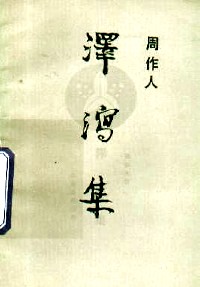 周作人
澤瀉集